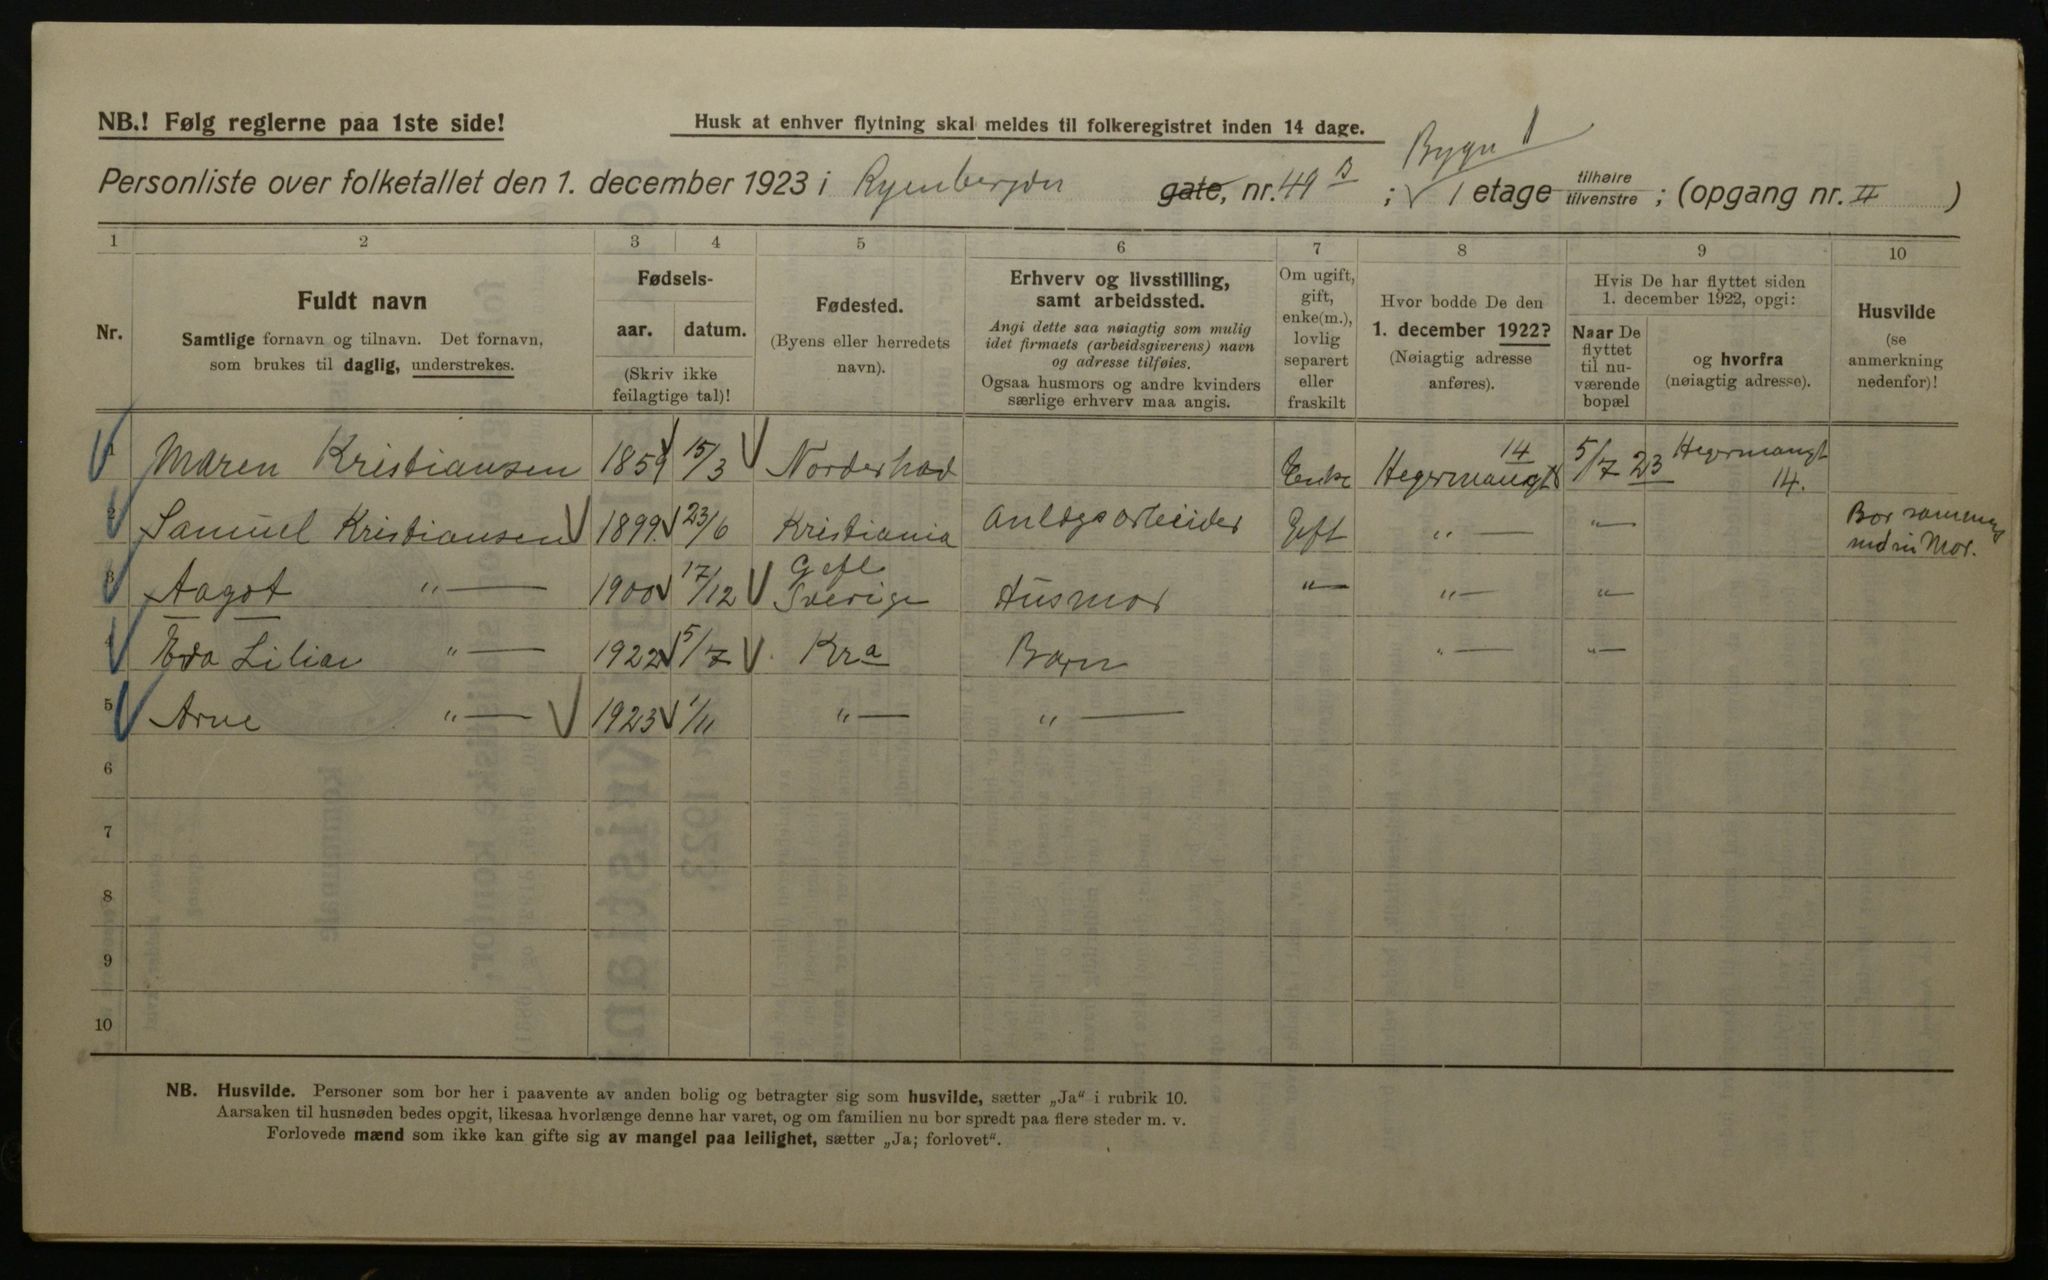 NB.! Følg reglerne paa 1ste side!
Husk at enhver flytning skal meldes til folkeregistret inden 14 dage.
Bygn 1
Personliste over folketallet den 1. december 1923 i Ryenbergvn gate, nr. 49 B ; 1 etage tilhøire tilvenstre ; (opgang nr. II )
1 2 3 4 5 6 7 8 9 10
Nr.
Fuldt navn
Samtlige fornavn og tilnavn. Det fornavn,
som brukes til daglig, understrekes.
Fødsels-
aar. datum.
(Skriv ikke
feilagtige tal)!
Fødested.
(Byens eller herredets
navn).
Erhverv og livsstilling,
samt arbeidssted.
Angi dette saa nøiagtig som mulig
idet firmaets (arbeidsgiverens) navn
og adresse tilføies.
Ogsaa husmors og andre kvinders
særlige erhverv maa angis.
Om ugift,
gift,
enke(m.),
lovlig
separert
eller
fraskilt
Hvor bodde De den
1. december 1922?
(Nøiagtig adresse
anføres).
Hvis De har flyttet siden
1. december 1922, opgi:
Naar De
flyttet
til nu-
værende
bopæl
og hvorfra
(nøiagtig adresse).
Husvilde
(se
anmerkning
nedenfor)!
1 Maren Kristiansen 1859 15/3 Norderhod Enke Hegermansgt 14 5/7 23 Hegermansgt 14.
2 Samuel Kristiansen 1899 23/6 Kristiania Anlægsarbeider Gift " — " — Bor sammen med sin Mor.
3 Aagot " — 1900 17/12 Gefle Sverige Husmor " — " — " —
4 Eda Lilian " — 1922 5/7 Kra Barn " — " —
5 Arne " — 1923 1/11 " — " —
6
7
8
9
10
NB. Husvilde. Personer som bor her i paavente av anden bolig og betragter sig som husvilde, sætter „Ja“ i rubrik 10.
Aarsaken til husnøden bedes opgit, likesaa hvorlænge denne har varet, og om familien nu bor spredt paa flere steder m. v.
Forlovede mænd som ikke kan gifte sig av mangel paa leilighet, sætter „Ja; forlovet“.